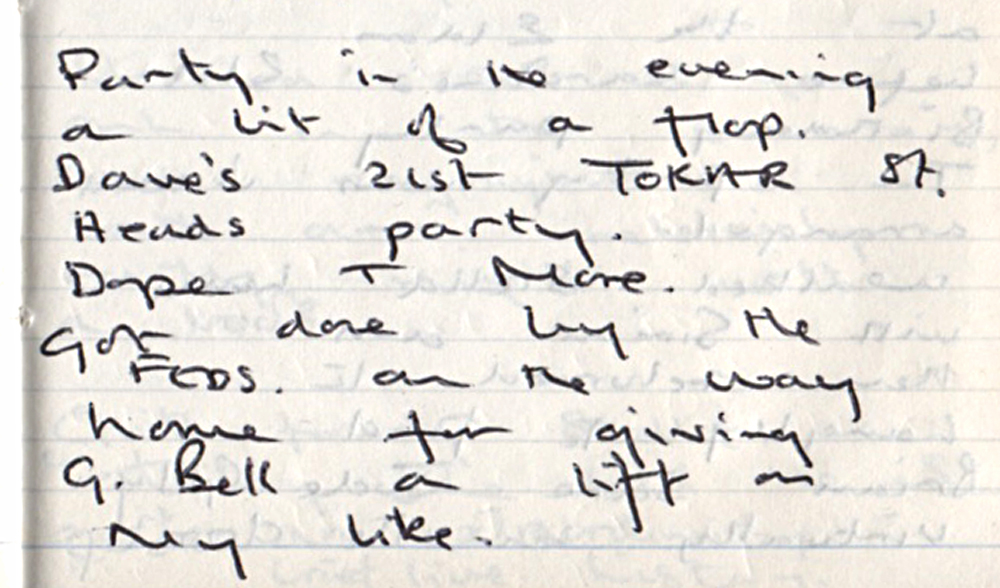 Party in the evening
a bit of a flop.
Dave's 21st TOKAR St.
Heads party.
Dope T More.
Got done by the
FEDS. on the way
home for giving
G. Bell a lift on
my bike.